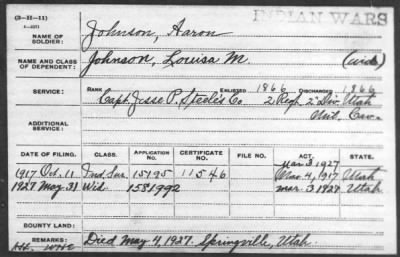 (3-H-11)
INDIAN WARS
NAME OF SOLDIER: Johnson, Aaron
NAME AND CLASS OF DEPENDENT: Johnson, Louisa M. (wid)
SERVICE: RANK ENLISTED 1866 DISCHARGED 1866
Capt. Jesse P. Steele's Co 2 Regt. 2" Div. Utah
Mil. Cav.
ADDITIONAL SERVICE:
DATE OF FILING. CLASS. APPLICATION NO. CERTIFICATE NO. FILE NO. ACT. STATE.
Mar 3 1927
1917 Oct. 11 Ind. Sur. 15195 11546 Mar. 4, 1917 Utah
1927 May 31 Wid. 1581992 Mar. 3 1927 Utah.
BOUNTY LAND:
REMARKS: Died May 4, 1927. Springville, Utah.